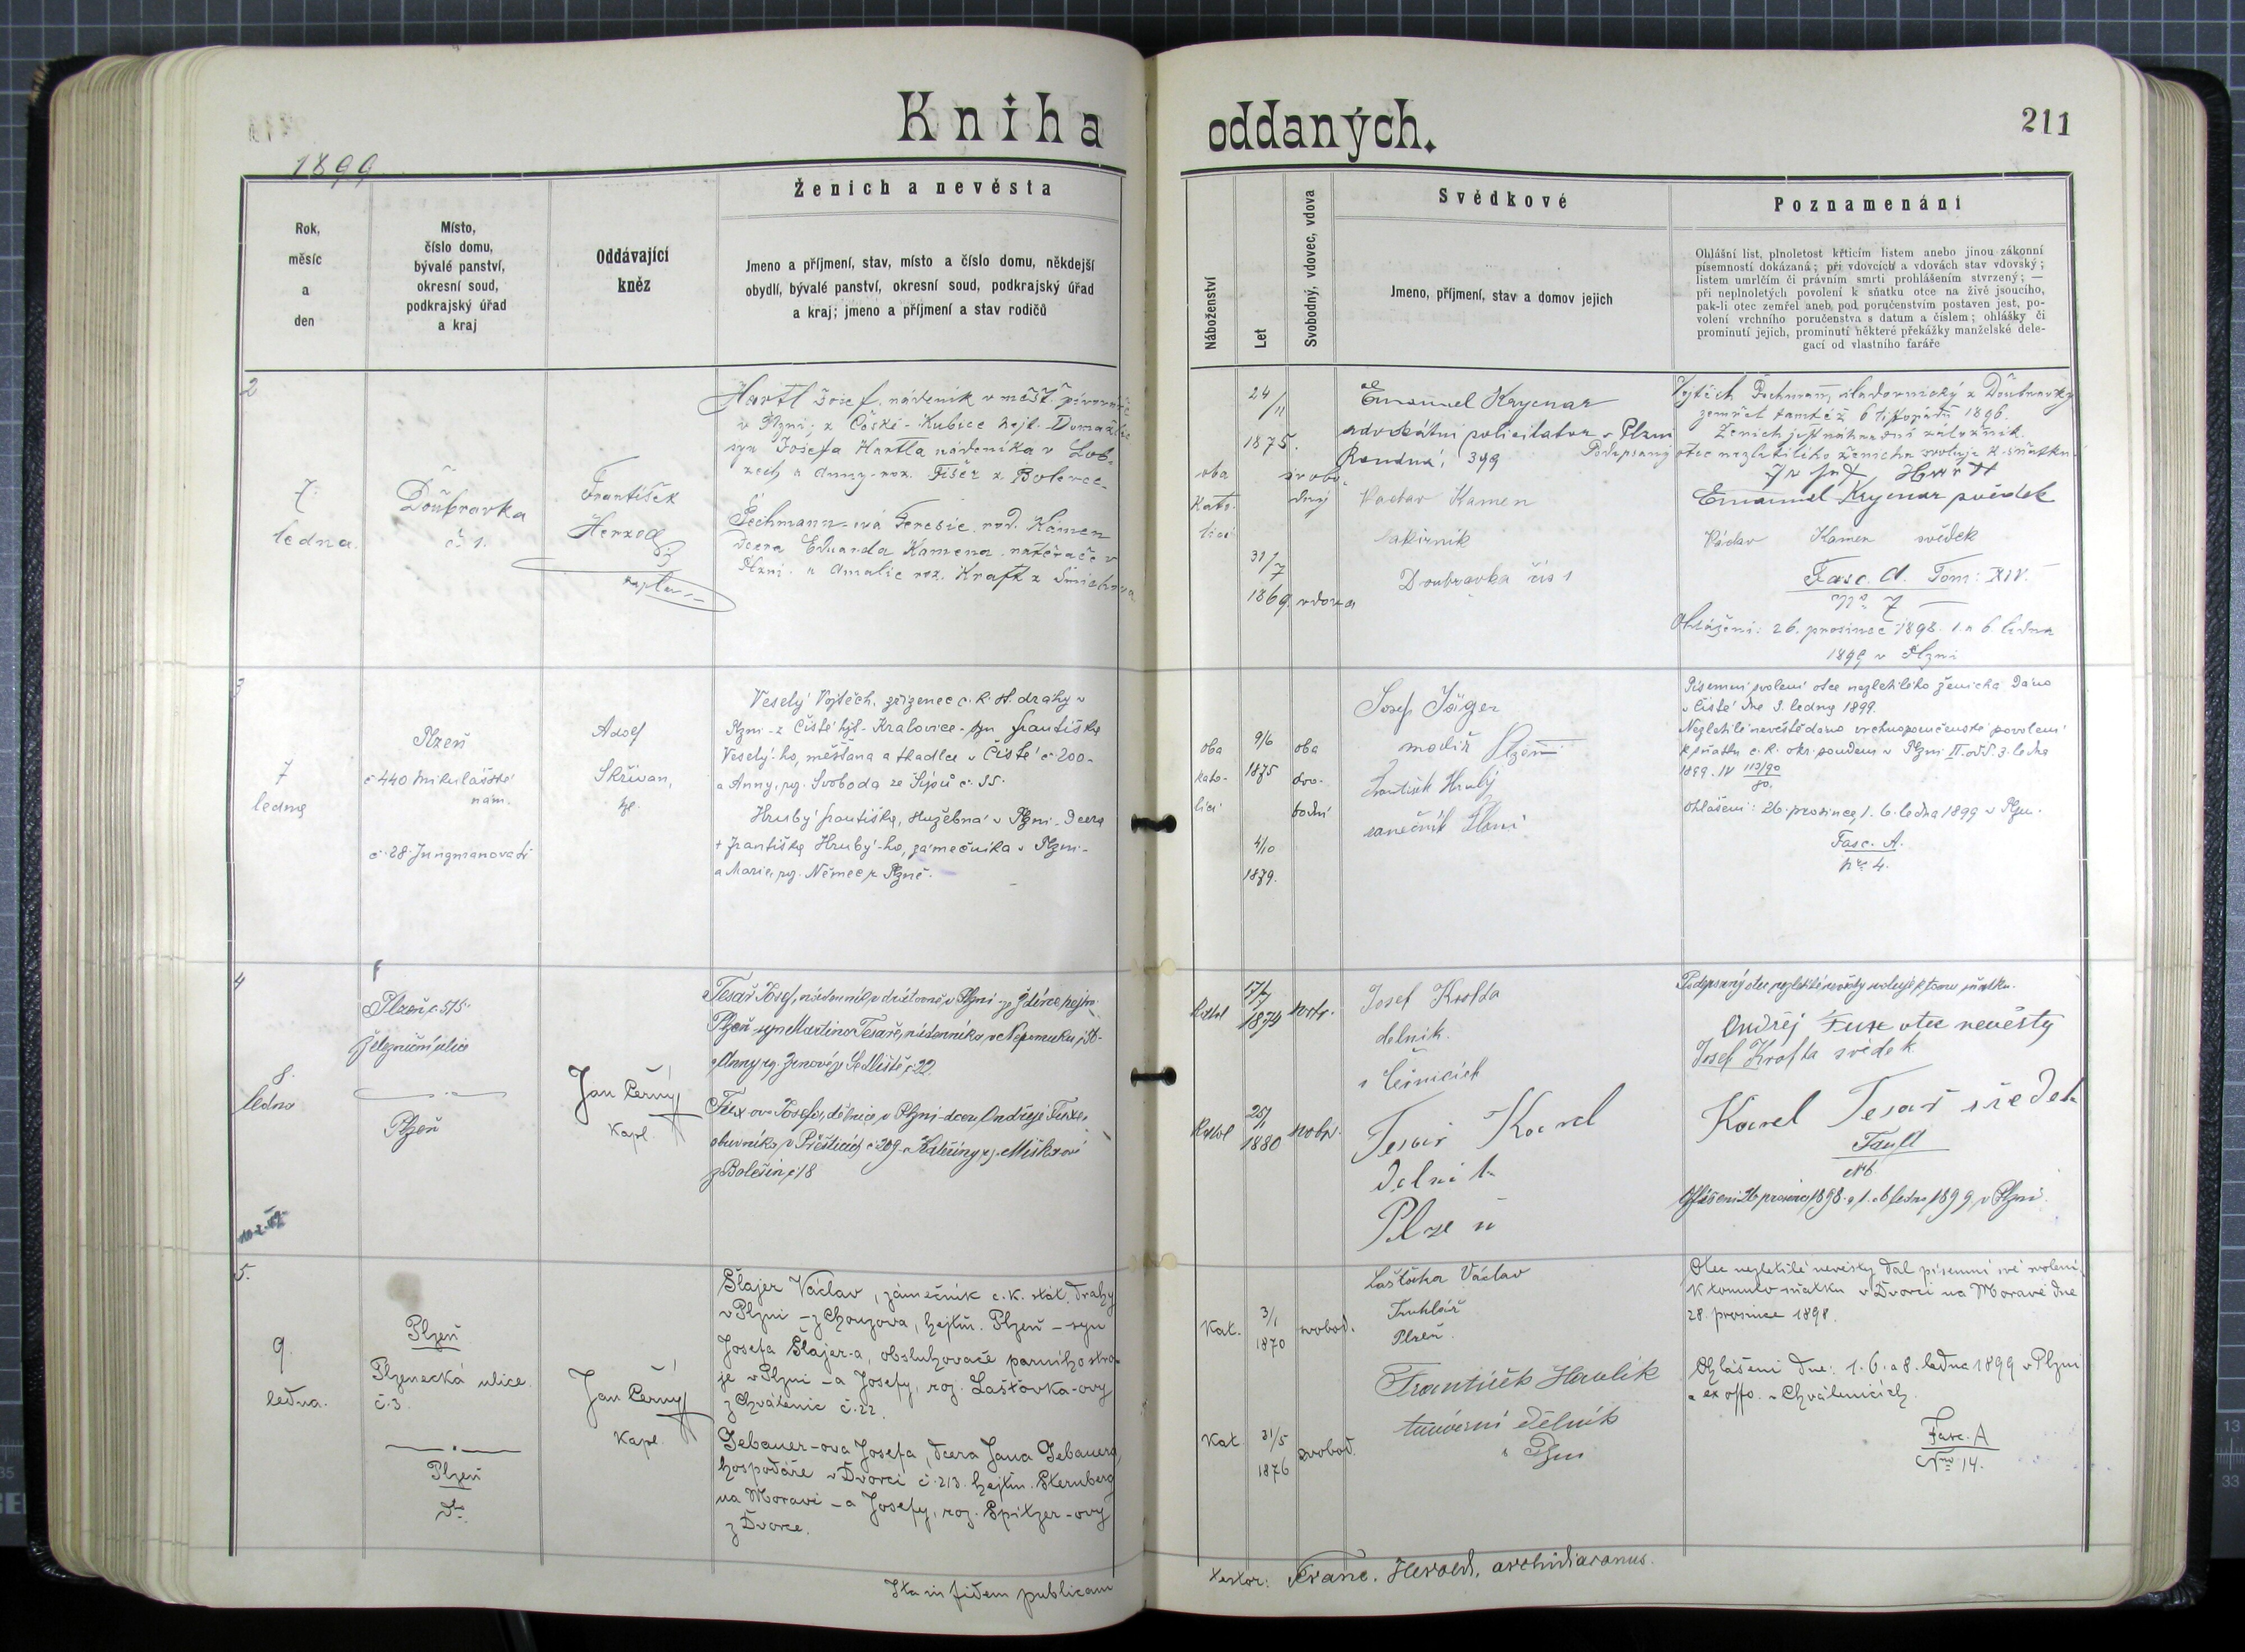 Kniha oddaných.
211
1899
Rok,
měsíc
a
den
Místo,
číslo domu,
bývalé panství,
okresní soud,
podkrajský úřad
a kraj
Oddávající
kněz
Ženich a nevěsta
Jmeno a příjmení, stav, místo a číslo domu, někdejší
obydlí, bývalé panství, okresní soud, podkrajský úřad
a kraj; jmeno a příjmení a stav rodičů
Náboženství
Let
Svobodný, vdovec, vdova
Svědkové
Jmeno, příjmení, stav a domov jejich
Poznamenání
Ohlášní list, plnoletost křticím listem anebo jinou zákonní
písemností dokázaná; při vdovcích a vdovách stav vdovský;
listem umrlčím či právním smrti prohlášením stvrzený; —
při neplnoletých povolení k sňatku otce na živě jsoucího,
pak-li otec zemřel aneb pod poručenstvím postaven jest, po-
volení vrchního poručenstva s datum a číslem; ohlášky či
prominutí jejich, prominutí některé překážky manželské dele-
gací od vlastního faráře
2
7.
ledna.
Doubravka
č. 1.
František
Herzog
kaplan
Hartl Josef, nádeník v měšť. pivovaře
v Plzni, z České-Kubice hejt. Domažlic
syn Josefa Hartla nádeníka v Lob-
zech a Anny roz. Fišer z Bolevce
Pechmann-ová Terezie rod. Kamen
dcera Eduarda Kamena natěrače v
Plzni a Amalie roz. Kraft z Smíchova
oba
kato-
lici
24/11
1875.
svobo-
dný
31/7
1869
vdova
Emanuel Krycnar
advokátní policitator v Plzni
399
Václav Kamen
Doubravka čís 1
Vojtěch Pechmann, z Doubravky
zemřel tamtéž 6 listopadu 1896.
Ženich jest náhradní záložník.
Podepsaný otec nezletilého ženicha svoluje k sňatku.
Josef Hartl
Emanuel Krycnar svědek
Václav Kamen svědek
Fasc. A. Tom: XIV.
No 7
Ohlášení: 26. prosince 1898. 1. a 6 ledna
1899 v Plzni
3
7
ledna
Plzeň
č 440 Mikulášské
nám.
č. 28. Jungmanova tř
Adolf
Skřivan,
Veselý Vojtěch, zřízenec c. k. st. dráhy v
Plzni - z Čisté hejt. Kralovice - syn Františka
Veselý-ho, měšťana a tkadlce v Čisté č 200-
a Anny, roz. Svoboda ze č. 55.
Hrubý Františka, služebná v Plzni - dcera
+ Františka Hrubý-ho, zámečníka v Plzni-
a Marie, roz. Němec z Plzně.
oba
kato-
lici
9/6
1875
oba
svo-
bodní
4/10
1879.
Josef Jäger
modlíř Plzeň
František Hrubý
Písemní svolení otce nezletilého ženicha dáno
v Čisté dne 3. ledna 1899.
Nezletilé nevěstě dáno vrchnoporučenské povolení
k sňatku c. k. okr. soudem v Plzni II. odd. 3. ledna
1899. IV 113/90
Ohlášení: 26. prosince, 1. 6. ledna 1899 v Plzni.
Fasc. A.
Nro 4.
4
8.
ledna
Plzeň č. 515
Železniční ulice
Plzeň
Jan Černý
Kapl.
Tesař Josef, nádenník v drátovně v Plzni ze Ždírce, hejtm.
Plzeň - syn Martina Tesaře, nádenníka v Nepomuku,
a Anny, rz. Sedliště č 22.
Fux-ova Josefa, dělnice, v Plzni - dcera Ondřeje Fuxe,
obuvníka, v Přešticích č 209 - a Kateřiny rz. Miškové
z Bolešin č 18
Kathol
17/7
1874
svob.
Kathol
25/1
1880
svobo.
Josef Krofta
delník
Tesař Karel
Delník
Plzeň
Podepsaný otec nezletilé nevěsty svoluje k tomu sňatku.
Ondřej Fux otec nevěsty
Josef Krofta svědek
Karel Tesař svědek
Fasc A
No 6
Ohlášení 26 prosince 1898. a 1. a 6 ledna 1899 v Plzni.
5.
9.
ledna.
Plzeň
Plzenecká ulice
č. 3.
Plzeň
dto
Jan Černý
Kapl.
Šlajer Václav, zámečník c. k. stát. dráhy
v Plzni - z Chouzova, hejtm. Plzeň - syn
Josefa Šlajer-a, obsluhovače parního stro-
je v Plzni - a Josefy, roz. Laštovka-ovy
z Chválenic č. 22.
Gebauer-ova Josefa, dcera Jana Gebauera,
hospodáře v Dvorci č. 213. hejtm. Sternberg
na Moravě - a Josefy, roz. Spitzer-ovy
z Dvorce.
Kat.
3/1
1870
svobod.
Kat
31/5
1876
svobod.
Laštovka Václav
Truhlář
Plzeň.
František Havlík
dělník
v Plzni
Otec nezletilé nevěsty dal písemní své svolení
k tomuto sňatku v Dvorci na Moravě dne
28. prosince 1898.
Ohlášeni dne: 1. 6. a 8. ledna 1899 v Plzni
a ex offo. v Chválenicích.
Fasc. A
Nro 14.
Ita in fidem publicam
testor: Franc. Herold, archidiaconus.